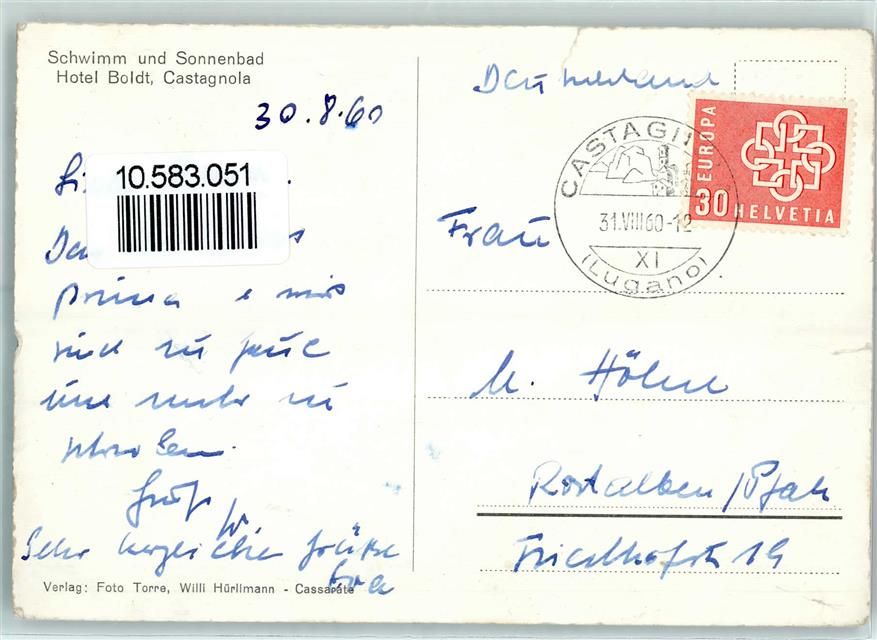 Schwimm und Sonnenbad
Hotel Boldt, Castagnola
30.8.60
10.583.051
prima
sind zu faul
und mehr zu
schreiben.
Gruß
Sehr herzliche Grüße
Eva
Verlag: Foto Torre, Willi Hürlimann - Cassarate
Deutschland
CASTAGN
31.VIII 60-12
XI
(Lugano)
EUROPA
30 HELVETIA
Frau
M. Höhne
Rodalben/Pfalz
Friedhofstr 19